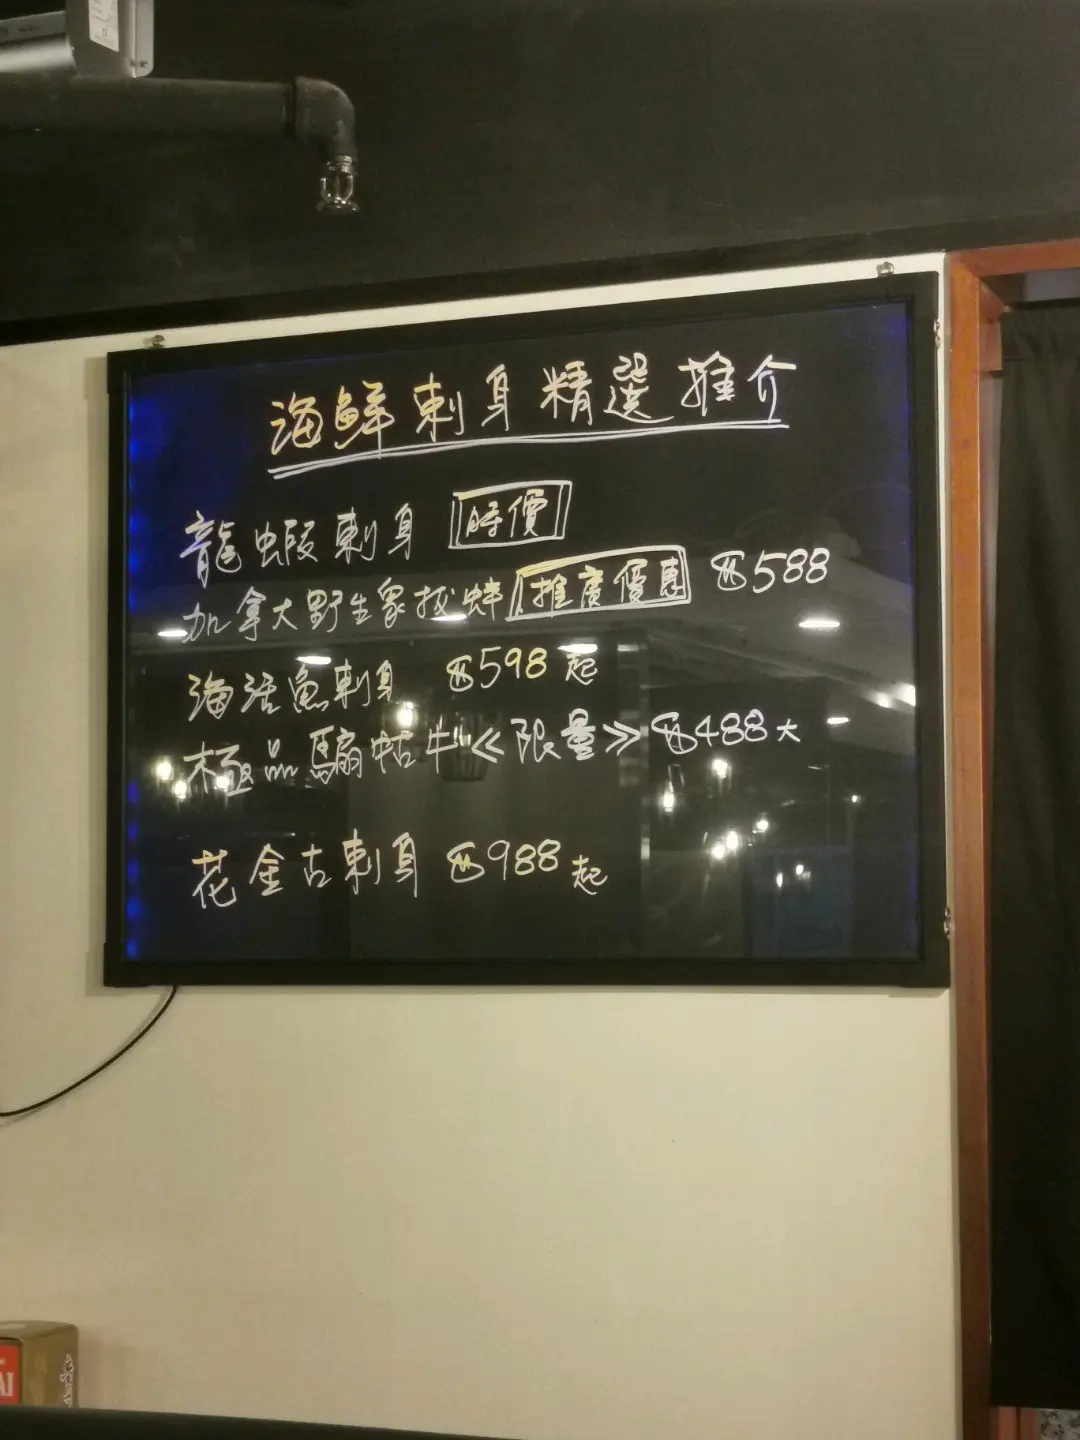 海鮮刺身精選推介
龍蝦刺身 時價
加拿大野生象拔蚌 推廣優惠 $588
海活魚刺身 $598起
極品騸牯牛《限量》 $488大
花金古刺身 $988起